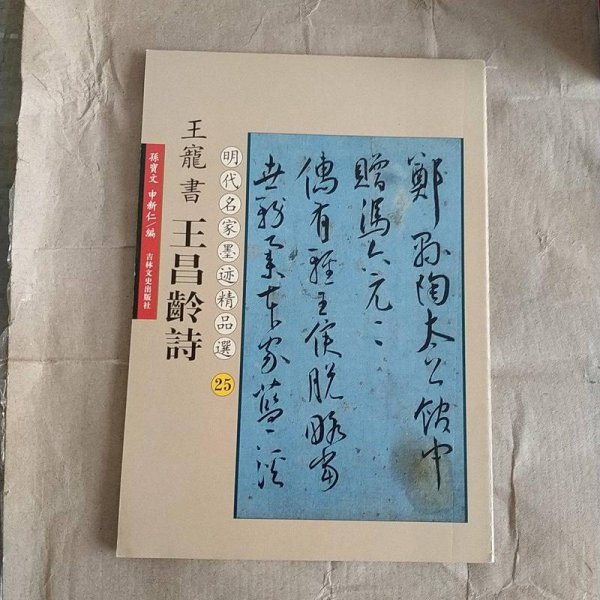 王寵書
王昌齡詩
明代名家墨迹精品選
25
孫寶文 申新仁/編
吉林文史出版社
鄭縣陶太公館中
贈馮六元二
儒有輕王侯脫略當
世務本家藍溪